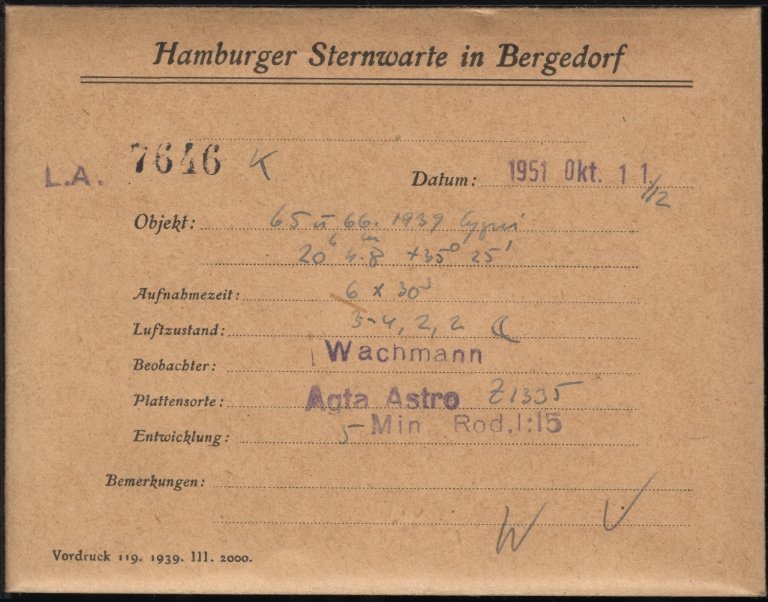 Hamburger Sternwarte in Bergedorf
L.A. 7646 K
Datum: 1951 Okt. 11./12
Objekt: 65 u 66. 1939 Cygni
20h 4m.8 +35° 25'
Aufnahmezeit: 6 x 30s
Luftzustand: 3-4, 2, 2
Beobachter: Wachmann
Plattensorte: Agfa Astro Z1335
Entwicklung: 5 Min Rod.1:15
Bemerkungen:
W
Vordruck 119. 1939. III. 2000.